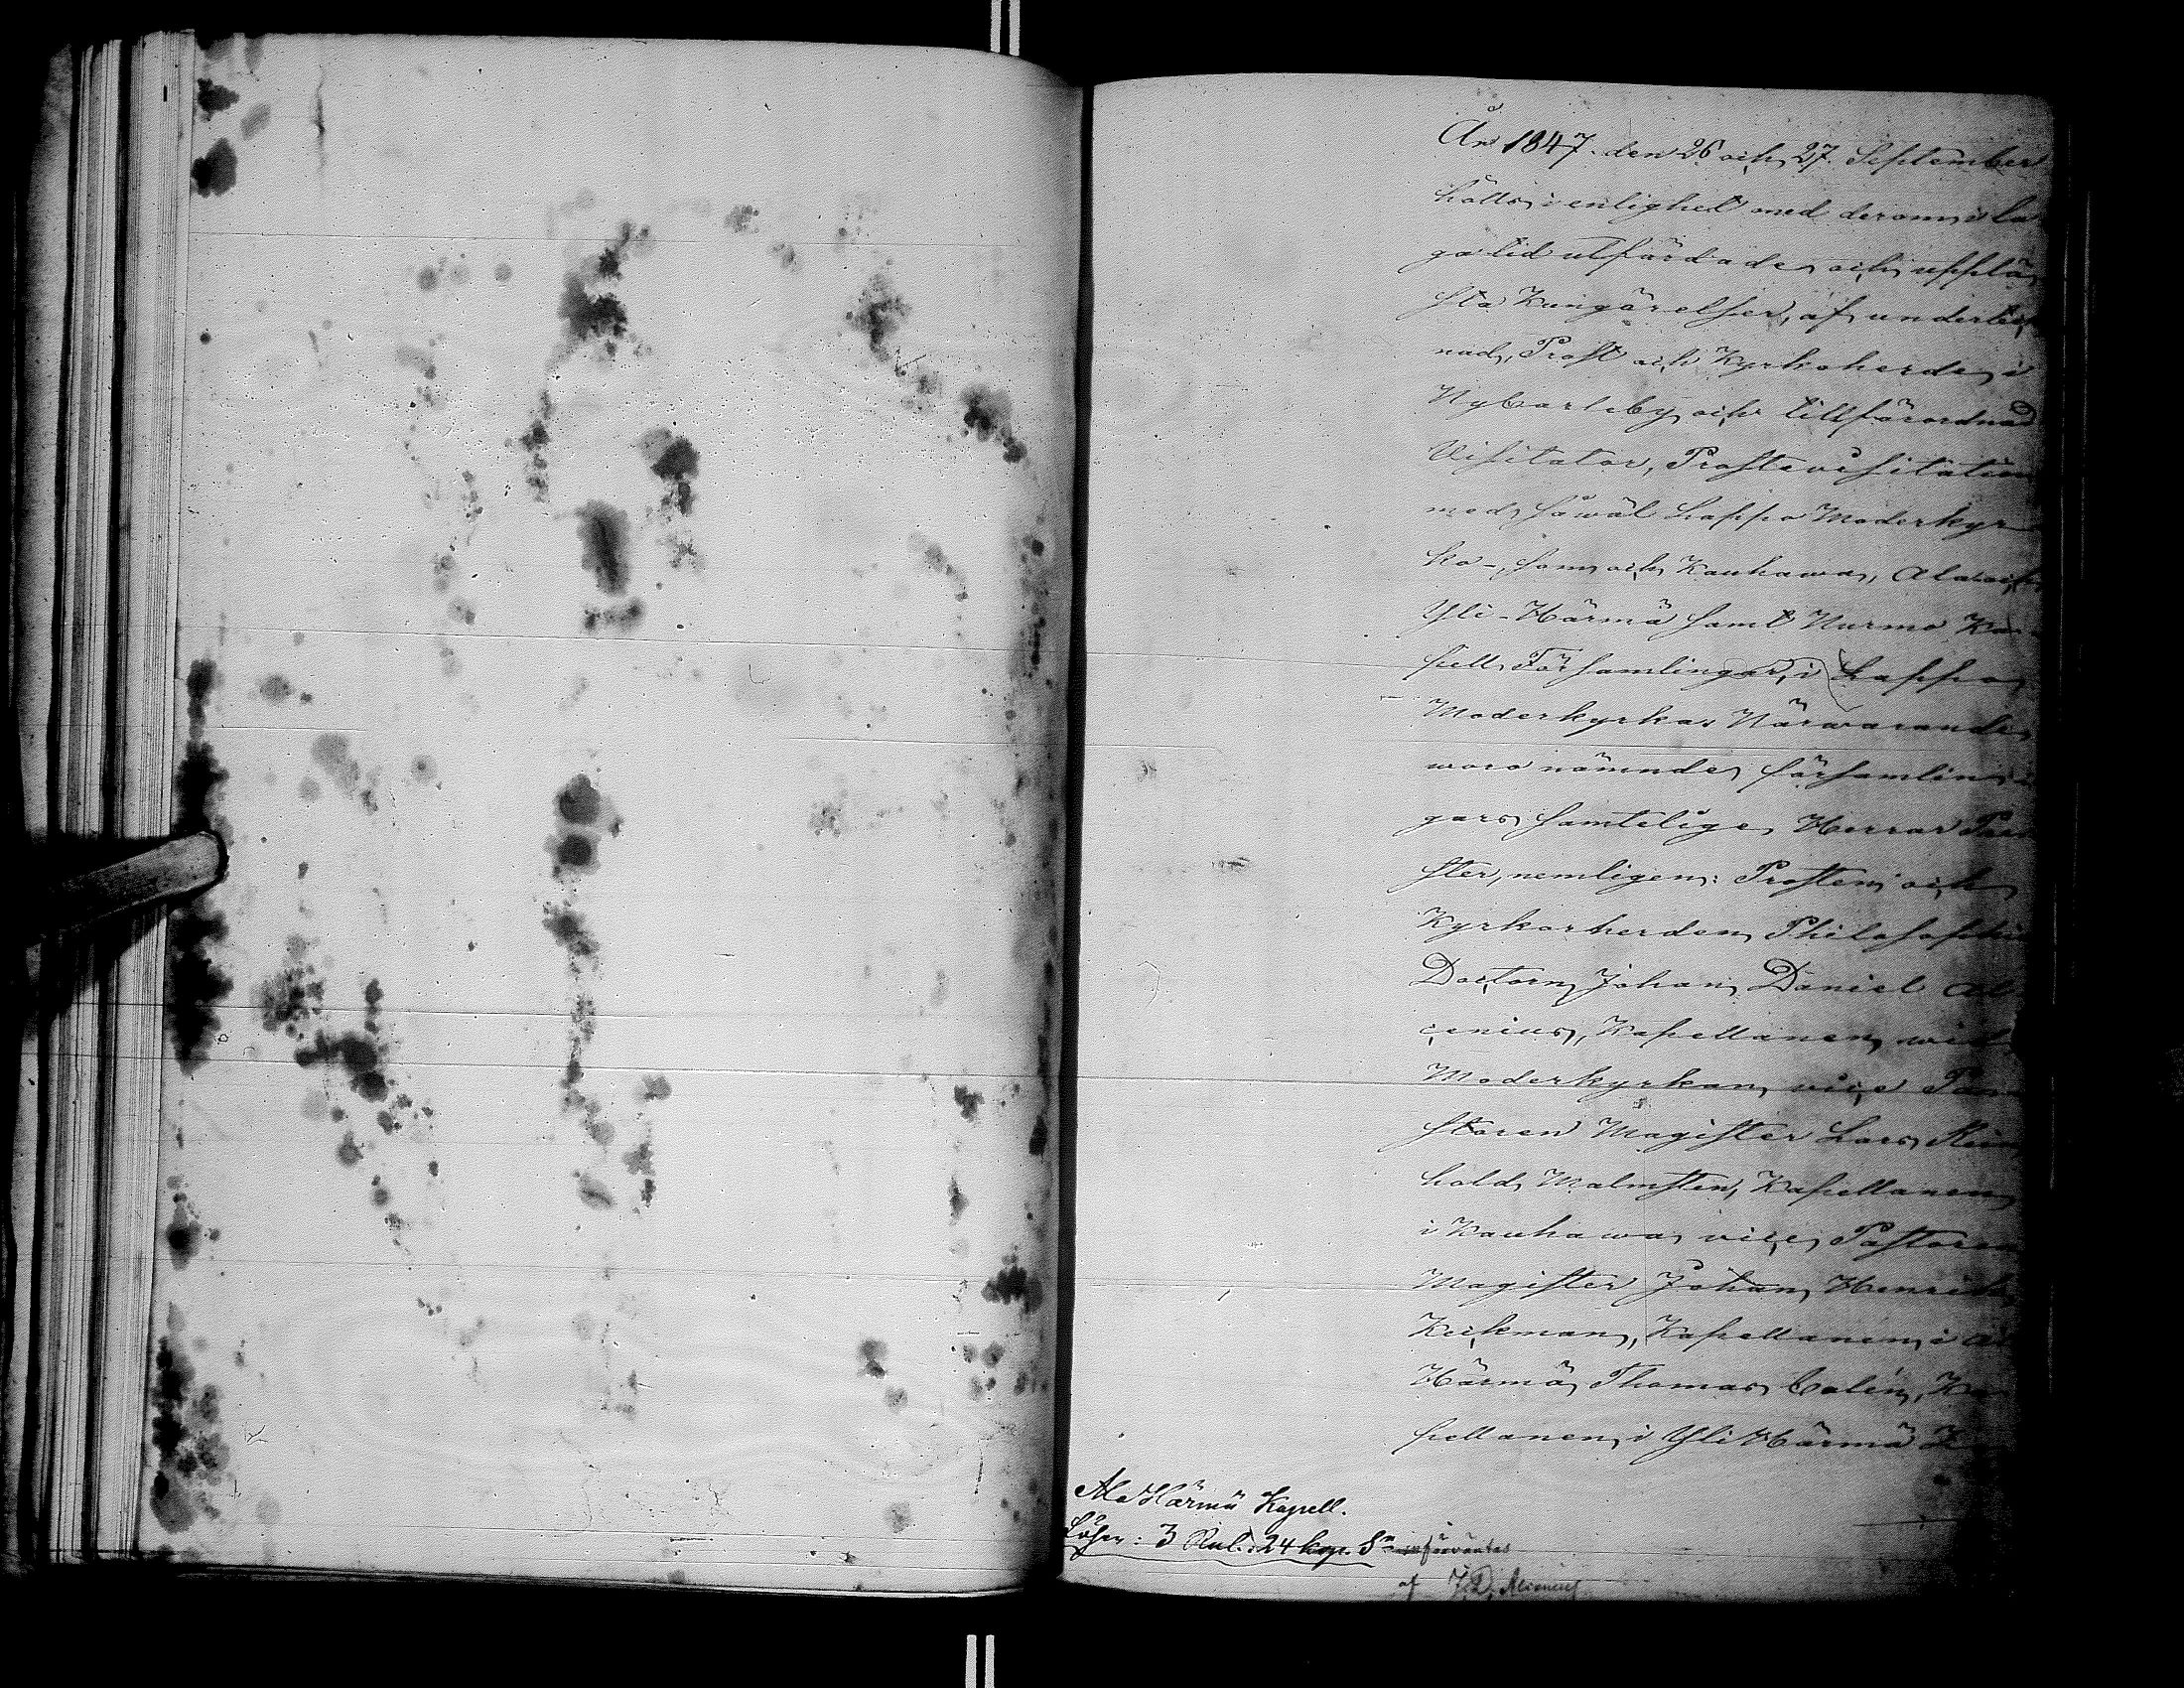 År 1847. den 26 och 27. September
hölls i enlighet med derom i la
ga tid utfärdade och upplä
sta Kungörelser, af underteck
nad, Prost och Kyrkoherde i
Nycarleby och tillförordnad
Visitator, Prostevisitation
med såwäl Lappo Moderkyr
ko-, som och Kauhawa, Ala och
Yli-Härmä samt Nurmo Ka
pell Församlingar, i Lappo
Moderkyrka. Närwarande
woro nämnde församlin
gars samtelige Herrar Pre
ster, nemligen: Prosten och
Kyrkoherden, Philosophiæ
Doctorn, Johan Daniel Al
cenius, Kapellanen wid
Moderkyrkan, vice Pa
storen Magister Lars Rein
hold Malmsten, Kapellanen
i Kauhawa, vice Pastoren
Magister Johan Henrik
Keckman, Kapellanen i Ala
Härmä Thomas Calén, Ka
pellanen i Yli Härmä
Ala Härmä Kapell.
Lösen: 3 Rub. 24 kop. Sr
af J. D. Alcenius